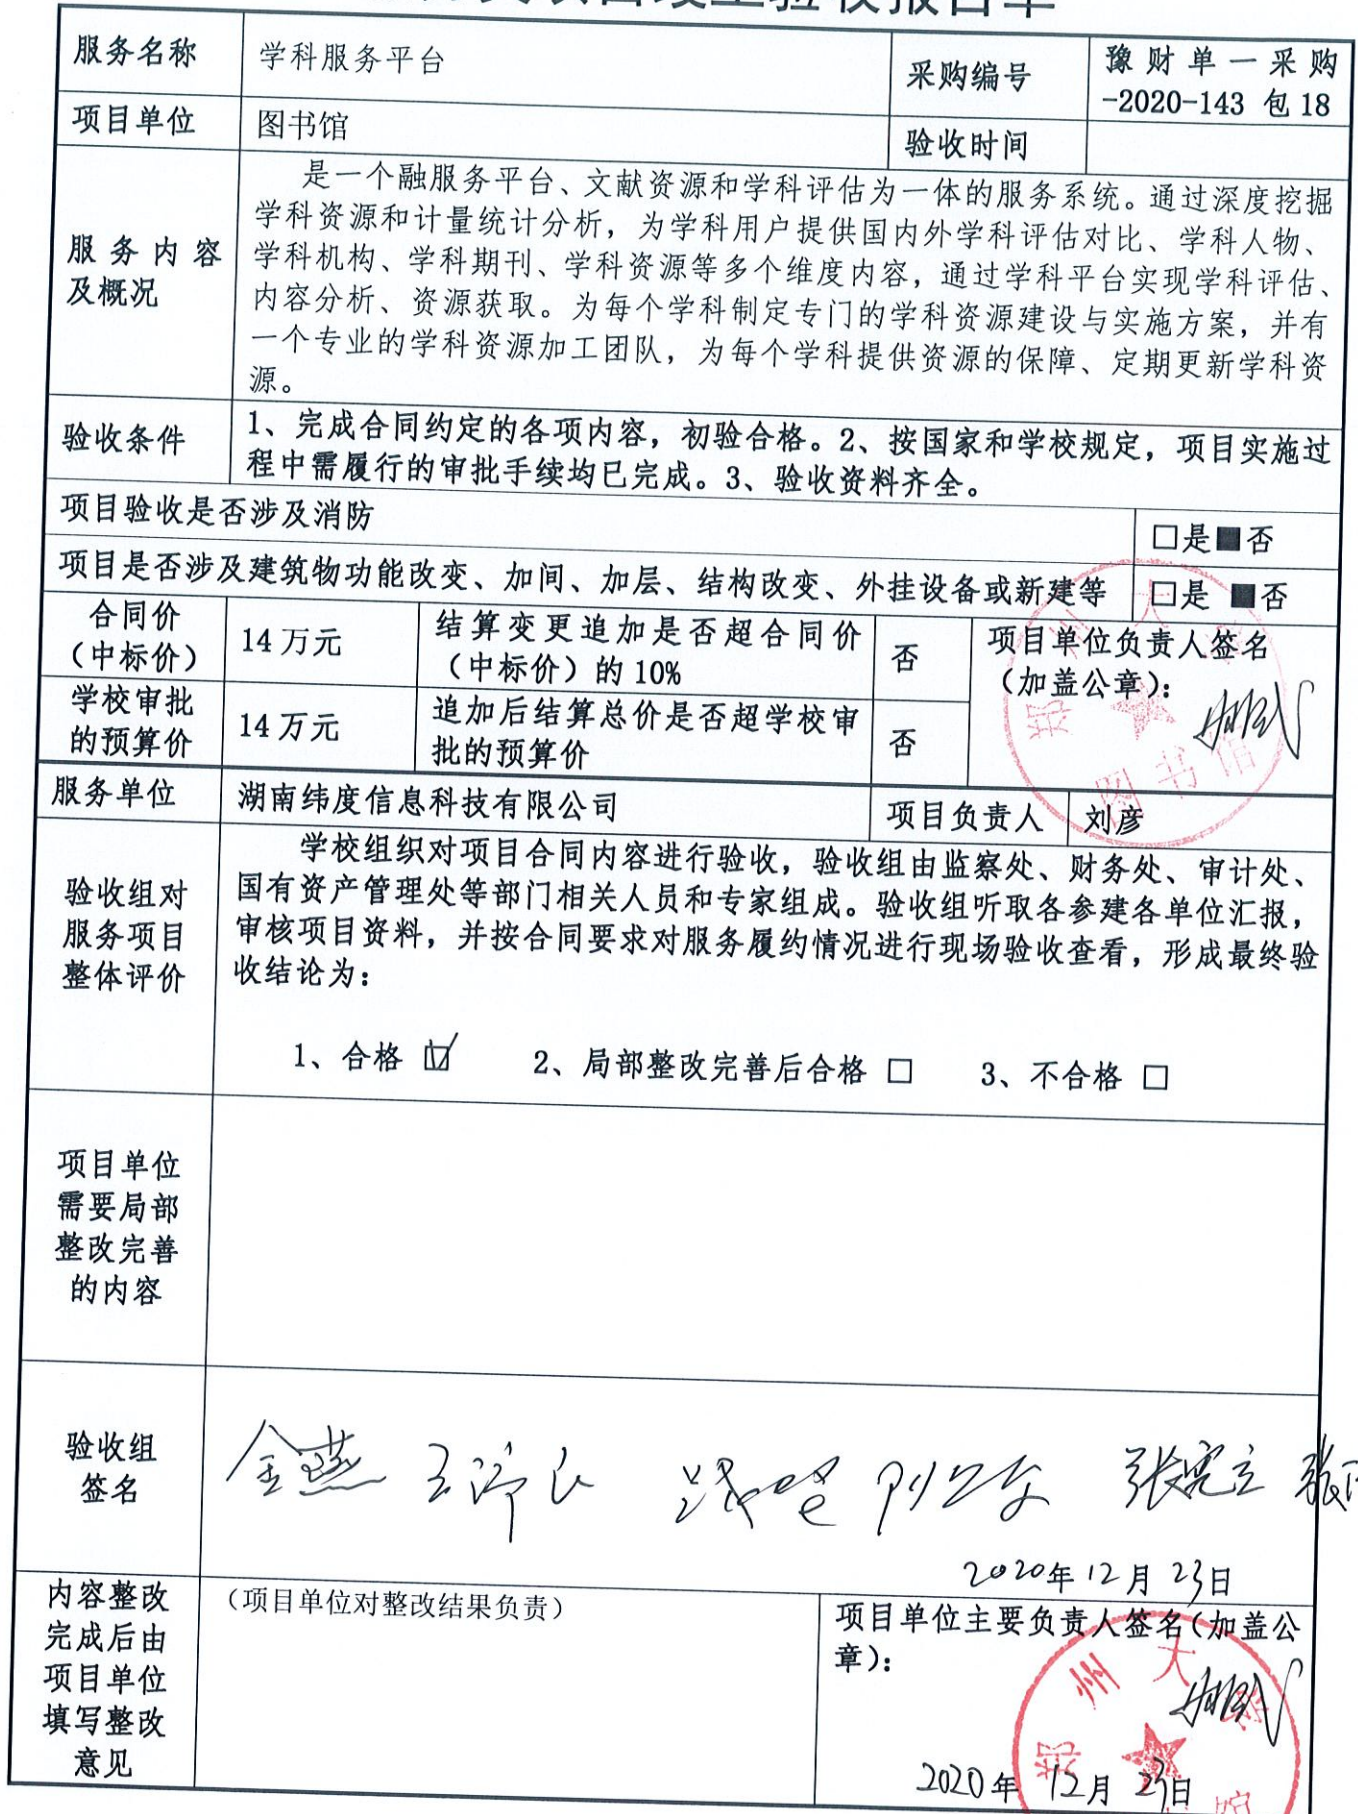 验收报告单
服务名称
学科服务平台
采购编号
豫财单一采购
-2020-143 包18
项目单位
图书馆
验收时间
服务内容
及概况
是一个融服务平台、文献资源和学科评估为一体的服务系统。通过深度挖掘
学科资源和计量统计分析，为学科用户提供国内外学科评估对比、学科人物、
学科机构、学科期刊、学科资源等多个维度内容，通过学科平台实现学科评估、
内容分析、资源获取。为每个学科制定专门的学科资源建设与实施方案，并有
一个专业的学科资源加工团队，为每个学科提供资源的保障、定期更新学科资
源。
验收条件
1、完成合同约定的各项内容，初验合格。2、按国家和学校规定，项目实施过
程中需履行的审批手续均已完成。3、验收资料齐全。
项目验收是否涉及消防
□是■否
项目是否涉及建筑物功能改变、加间、加层、结构改变、外挂设备或新建等
□是 ■否
合同价
（中标价）
14万元
结算变更追加是否超合同价
（中标价）的10%
否
项目单位负责人签名
（加盖公章）：
学校审批
的预算价
14万元
追加后结算总价是否超学校审
批的预算价
否
郑州大学
图书馆
服务单位
湖南纬度信息科技有限公司
项目负责人
刘彦
验收组对
服务项目
整体评价
学校组织对项目合同内容进行验收，验收组由监察处、财务处、审计处、
国有资产管理处等部门相关人员和专家组成。验收组听取各参建各单位汇报，
审核项目资料，并按合同要求对服务履约情况进行现场验收查看，形成最终验
收结论为：
1、合格 ☑ 2、局部整改完善后合格 □ 3、不合格 □
项目单位
需要局部
整改完善
的内容
验收组
签名
金燕
张宪立
2020年12月23日
内容整改
完成后由
项目单位
填写整改
意见
（项目单位对整改结果负责）
项目单位主要负责人签名（加盖公
章）：
郑州大学
馆
2020年 12月 23日